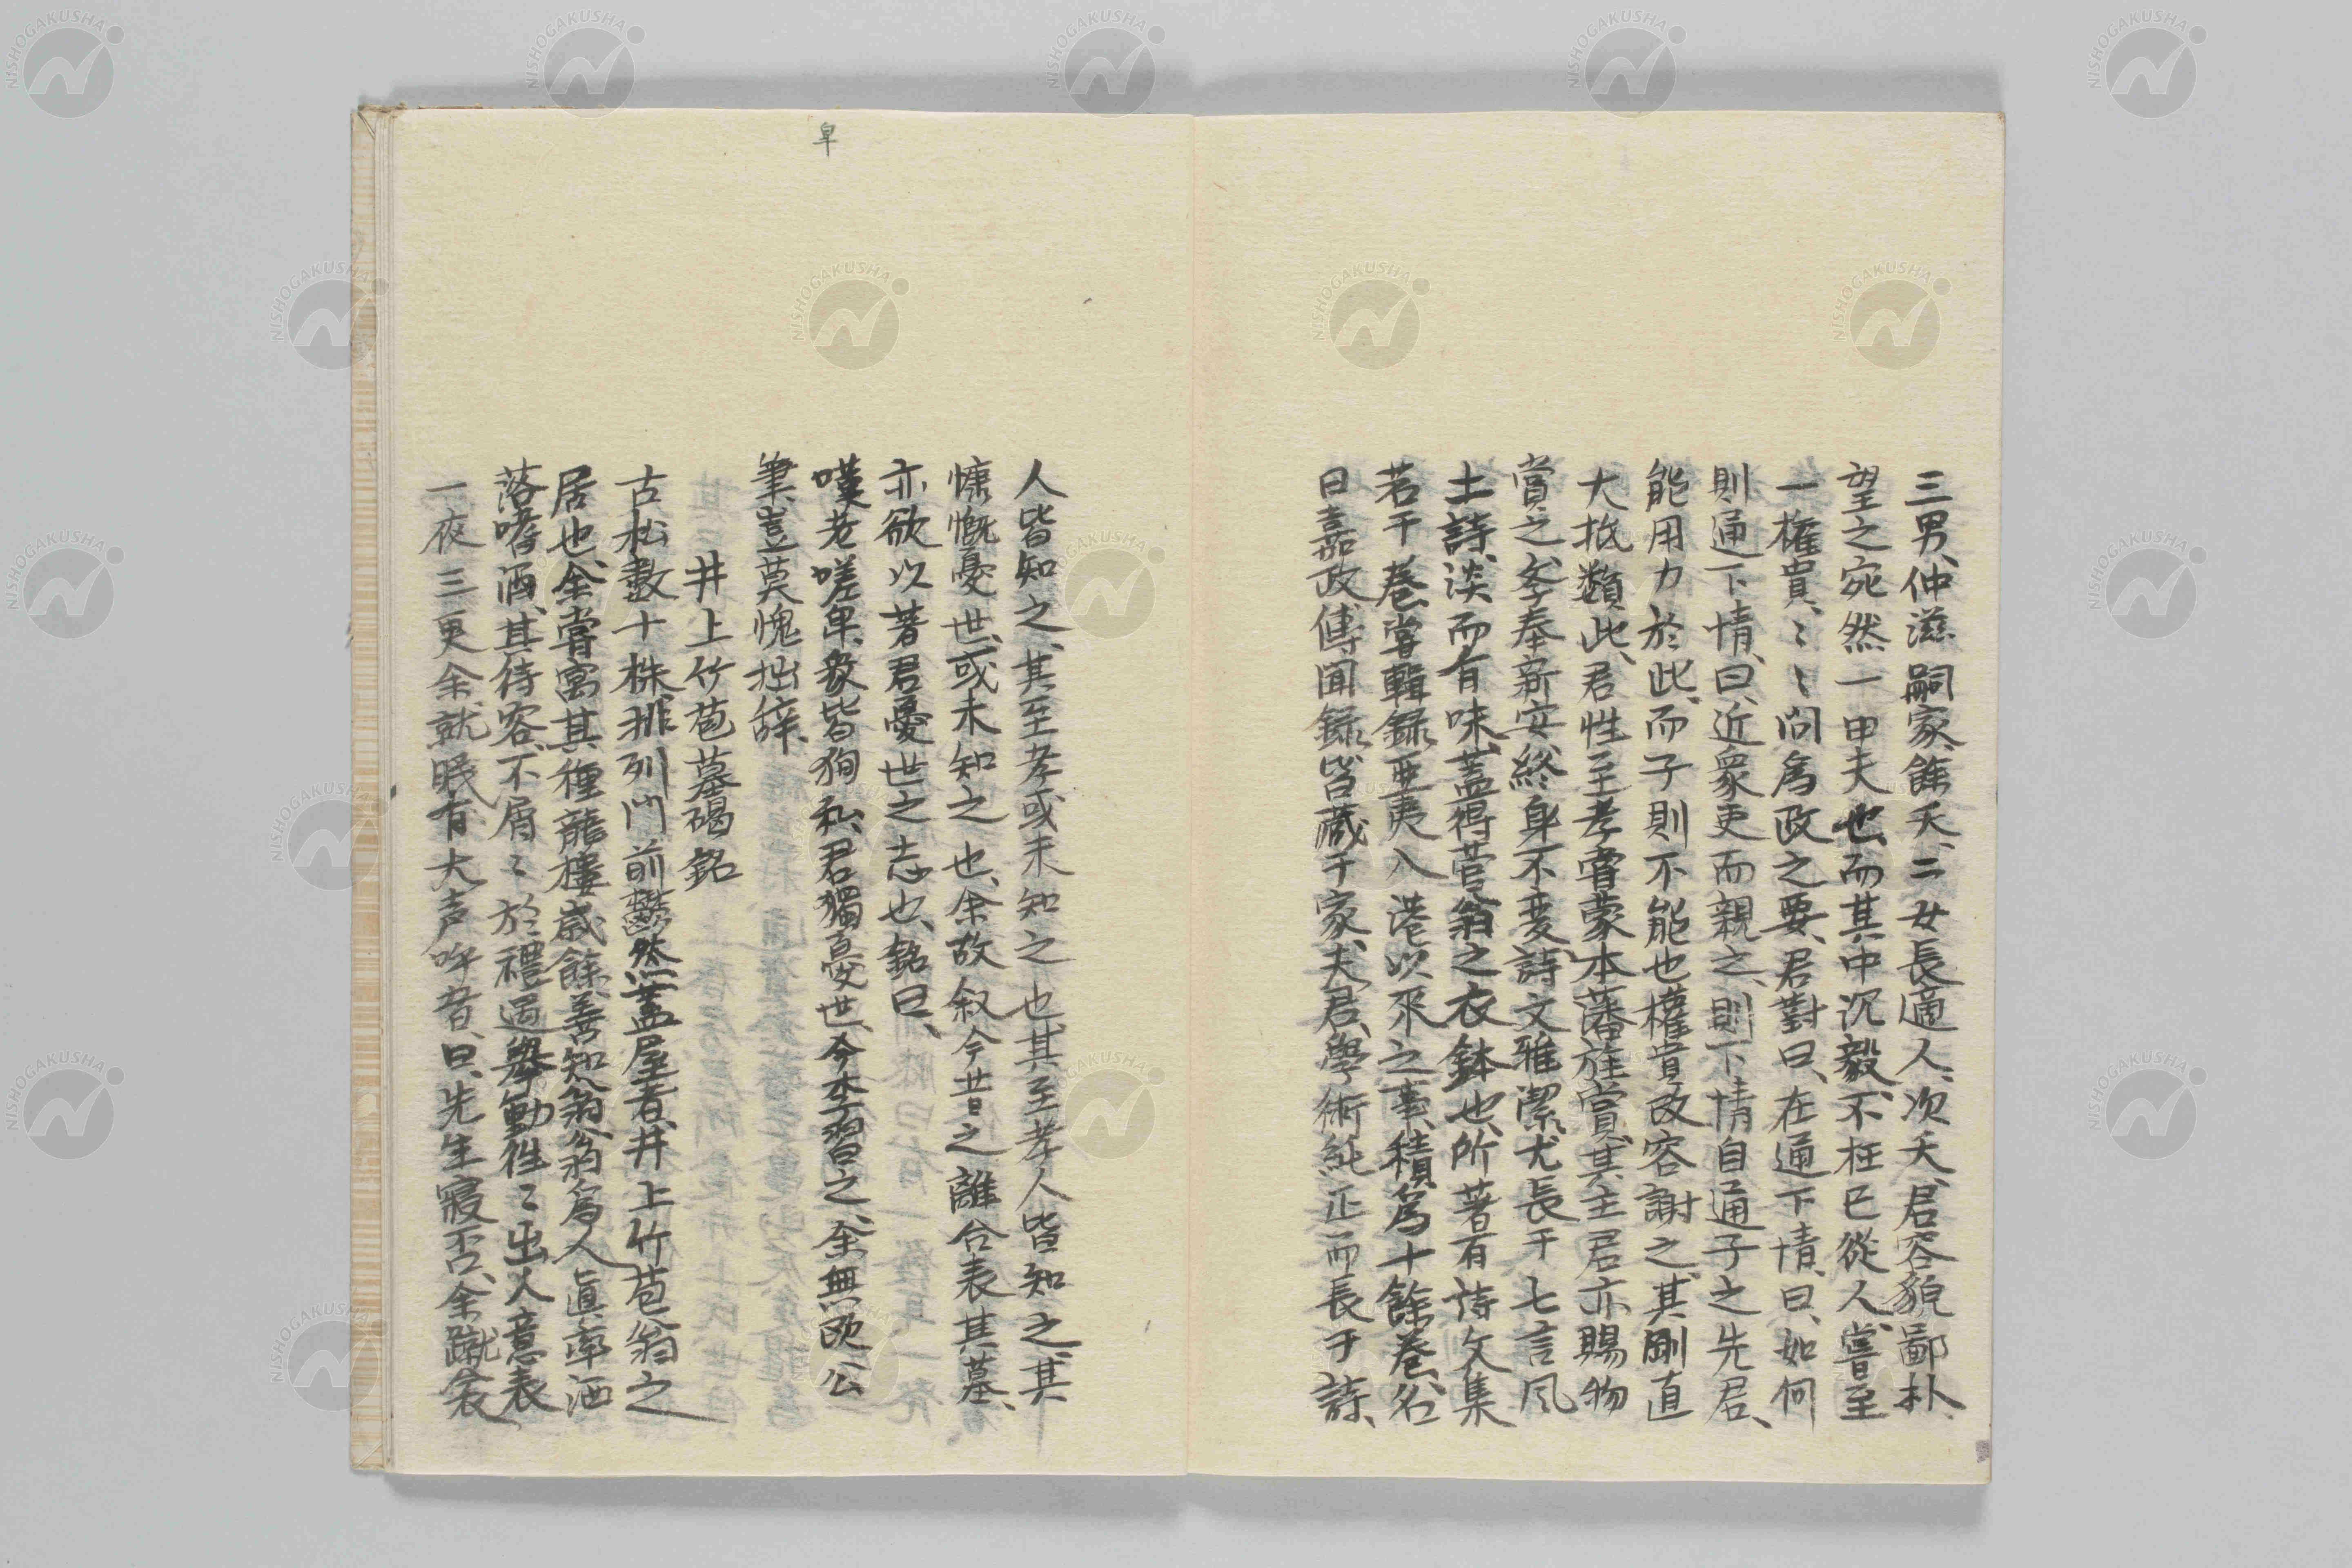 三男、仲滋嗣家、餘夭、二女長適人、次夭、君容貌鄙朴、
望之宛然一田夫也、而其中沉毅、不枉已從人、嘗至
一權貴、〻〻問爲政之要、君對曰、在通下情、曰、如何
則通下情、曰、近衆吏而親之、則下情自通、子之先君、
能用力於此、而子則不能也、權貴改容謝之、其剛直
大抵類此、君性至孝、嘗蒙本藩旌賞、其主君亦賜物
賞之、冬奉新安、終身不変、詩文雅潔、尤長于七言、風
土詩、淡而有味、蓋得菅翁之衣鉢也、所著有詩文集
若干巻、嘗輯録亜夷入港以来之事、積爲十餘巻、名
曰嘉政傳聞録、皆藏于家、夫君、學術純正而長于詩、
人皆知之、其至孝或未知之也、其至孝人皆知之、其
慷慨憂世、或未知之也、余故叙今昔之離合表其墓、
亦欲以著君憂世之志也、銘曰、
嘆老嗟卑、衆皆狥私、君獨憂世、今李習之、余無欧公
筆、豈莫愧拙辞、
井上竹苞墓碣銘
古松數十株、排列門前、鬱然蓋屋者、井上竹苞翁之
居也、余嘗寓其種龍樓歳餘、善知翁、翁爲人眞率洒
落嗜酒、其待客、不屑〻於禮遇、舉動徃〻出人意表、
一夜三更余就眠、有大声呼音、曰、先生寢否、余蹴衾
卑